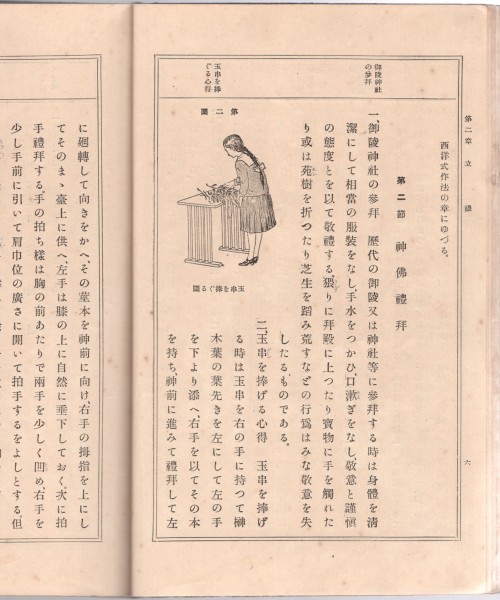 第二章 立禮
六
西洋式作法の章にゆづる。
第二節 神佛禮拜
御陵神社
の參拜
一、御陵神社の參拜 歷代の御陵又は神社等に參拜する時は身體を清
潔にして相當の服裝をなし、手水をつかひ、口漱ぎをなし、敬意と謹愼
の態度とを以て敬禮する。猥りに拜殿に上つたり寶物に手を觸れた
り或は苑樹を折つたり芝生を蹈み荒すなどの行爲はみな敬意を失
したるものである。
玉串を捧
ぐる心得
第二圖
玉串を捧ぐる圖
二、玉串を捧げる心得 玉串を捧げ
る時は玉串を右の手に持つて榊
木葉の葉先きを左にして左の手
を下より添へ、右手を以てその本
を持ち、神前に進みて禮拜して左
に廻轉して向きをかへ、その莖本を神前に向け、右手の拇指を上にし
てそのまゝ臺上に供へ、左手は膝の上に自然に垂下しておく。次に拍
手禮拜する。手の拍ち樣は胸の前あたりで兩手を少しく凹め、右手を
少し手前に引いて肩巾位の廣さに開いて拍手するをよしとする。但